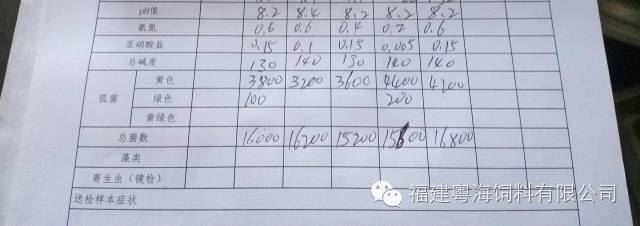 pH值 8.2 8.4 8.2 8.2 8.2
氨氮 0.6 0.6 0.4 0.2 0.6
亚硝酸盐 0.15 0.1 0.15 0.005 0.15
总碱度 130 140 130 140 140
弧菌 黄色 3800 3200 3600 4400 4200
绿色 100 200
黄绿色
总菌数 16000 16200 15200 15600 16800
藻类
寄生虫（镜检）
送检样本症状
福建粤海饲料有限公司